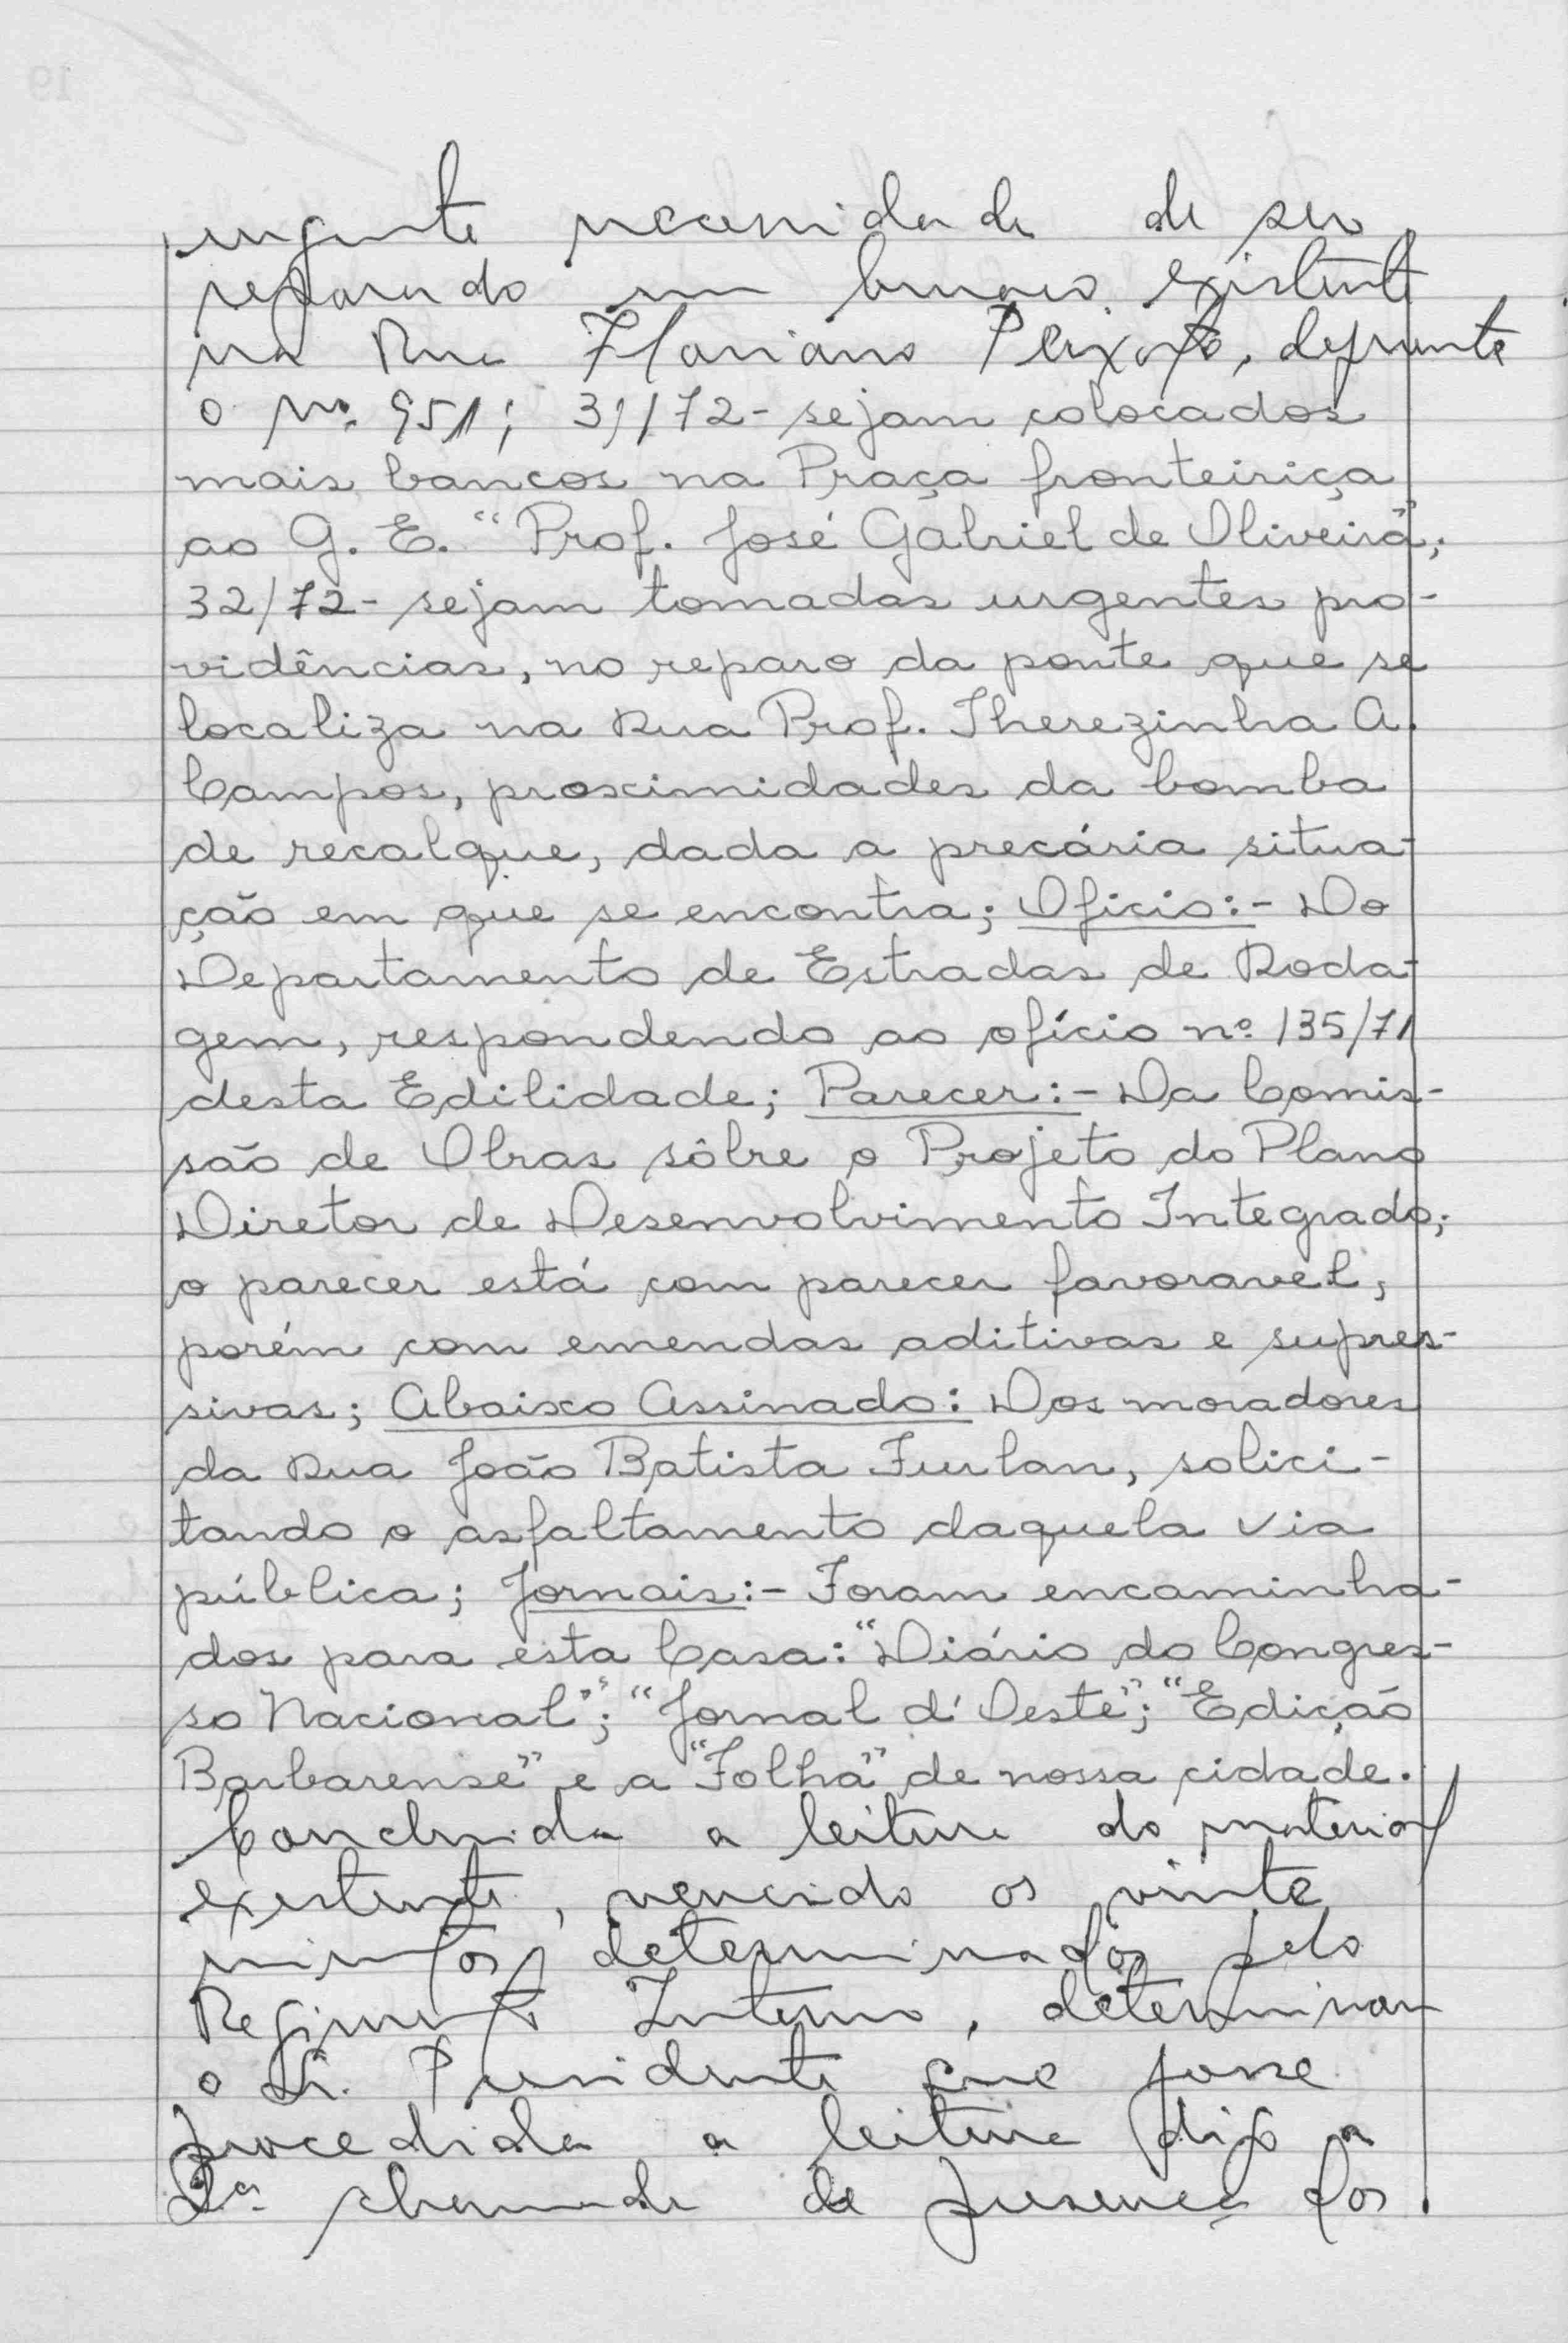 urgente necessidade de ser
reparado um buraco existente
na Rua Floriano Peixoto, defronte
o nº. 951; 31/72- sejam colocados
mais bancos na Praça fronteiriça
ao G. E. "Prof. José Gabriel de Oliveira";
32/72- sejam tomadas urgentes pro-
vidências, no reparo da ponte que se
localiza na Rua Prof. Therezinha A.
Campos, proximidades da bomba
de recalque, dada a precária situa-
ção em que se encontra; Oficio:- Do
Departamento de Estradas de Roda-
gem, respondendo ao ofício nº 135/71
desta Edilidade; Parecer:- Da Comis-
são de Obras sôbre o Projeto do Plano
Diretor de Desenvolvimento Integrado;
o parecer está com parecer favoravel,
porém com emendas aditivas e supres-
sivas; Abaixo Assinado: Dos moradores
da Rua João Batista Furlan, solici-
tando o asfaltamento daquela via
pública; Jornais:- Foram encaminha-
dos para esta Casa: "Diário do Congres-
so Nacional"; "Jornal d'Oeste"; "Edição
Barbarense" e a "Folha" de nossa cidade.
Concluida a leitura do material
existente, vencido os vinte
minutos determinados pelo
Regimento Interno, determinou
o Sr. Presidente que fosse
procedida a leitura digo a
2ª chamada de presença dos